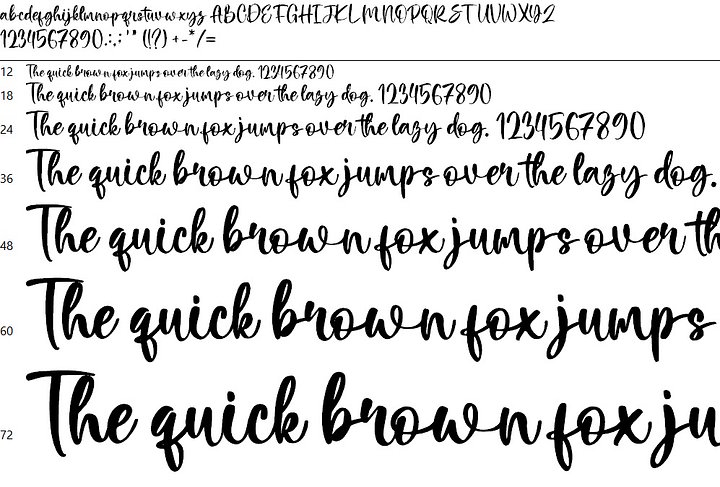 abcdefghijklmnopqrstuvwxyz ABCDEFGHIJKLMNOPQRSTUVWXYZ
1234567890.:,; ' " (!?) +-*/=
12 The quick brown fox jumps over the lazy dog. 1234567890
18 The quick brown fox jumps over the lazy dog. 1234567890
24 The quick brown fox jumps over the lazy dog. 1234567890
36 The quick brown fox jumps over the lazy dog.
48 The quick brown fox jumps over th
60 The quick brown fox jumps
72 The quick brown fox ju